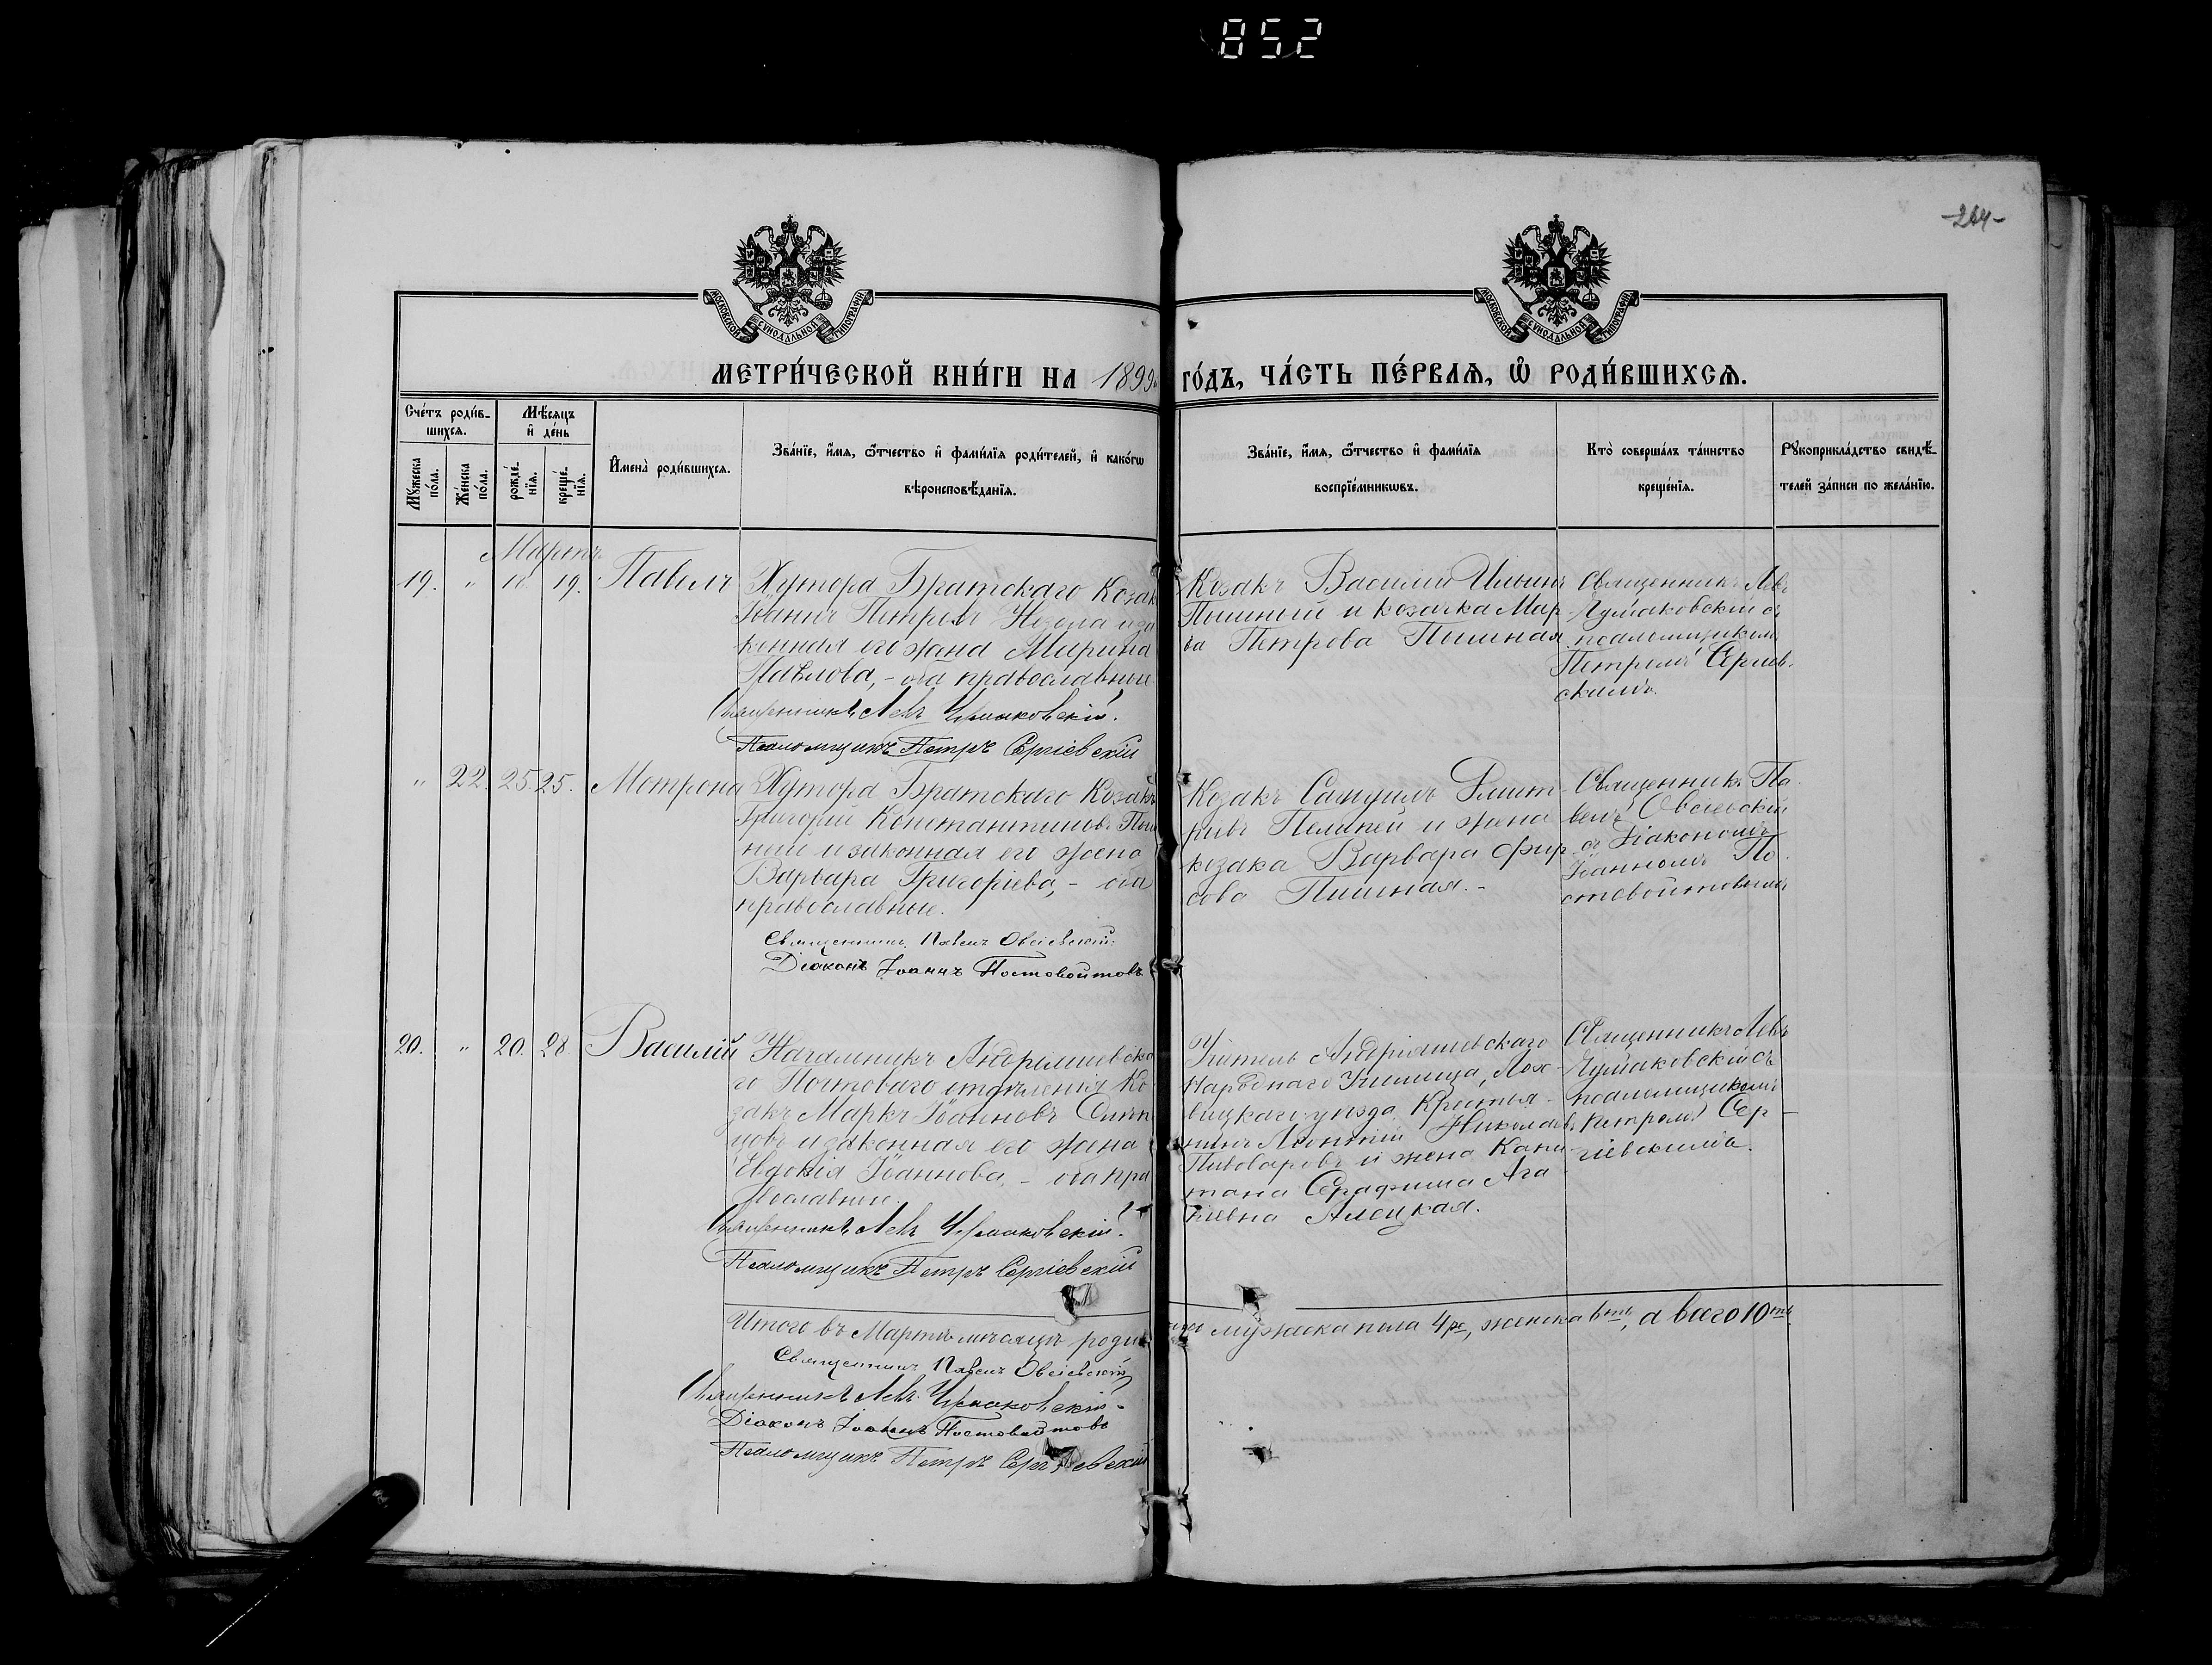 852
-264-
МОСКОВСКОЙ СѴНОДАЛЬНОЙ ТИПОГРАФІИ
МОСКОВСКОЙ СѴНОДАЛЬНОЙ ТИПОГРАФІИ
МЕТРИ́ЧЕСКОЙ КНИ́ГИ НА 1899 ГО́ДЪ, ЧА́СТЬ ПЕ́РВАѦ, Ѽ РОДИ́ВШИХСѦ.
Сче́тъ роди́в-
шихсѧ.
Мꙋ́жеска по́ла.
Же́нска по́ла.
Мѣ́сѧцъ
и҆ де́нь
рожде́нїѧ.
креще́нїѧ.
И҆мена̀ роди́вшихсѧ.
Зва́нїе, и҆́мѧ, ѻ҆́тчество и҆ фами́лїѧ роди́телей, и҆ како́гѡ
вѣроисповѣ́данїѧ.
Зва́нїе, и҆́мѧ, ѻ҆́тчество и҆ фами́лїѧ
воспрїе́мникѡвъ.
Кто̀ соверша́лъ та́инство
креще́нїѧ.
Рꙋкоприкла́дство свидѣ́-
телей за́писи по жела́нїю.
Мартъ
19. " 18. 19. Павелъ
Хутора Братскаго Козакъ
Іоаннъ Петровъ и за
конная его жена Марина
Павлова, - оба православные
Священникъ Левъ Чумаковскій.
Псаломщикъ Петръ Сергіевскій
Козакъ Василій Ильинъ
Пышный и козачка Мар
ѳа Петрова Пышная
Священникъ Левъ
Чумаковскій съ
псаломщикомъ
Петромъ Сергіев-
скимъ.
" 22. 25. 25. Мотрона
Хутора Братскаго Козакъ
Григорій Константиновъ Пыш
ный и законная его жена
Варвара Григоріева, - оба
православные.
Священникъ Павелъ Овсіевскій.
Діаконъ Іоаннъ Постовойтовъ
Козакъ Самуилъ Дмит-
ріевъ и жена
козака Варвара Фир
сова Пышная. -
Священникъ Па-
велъ Овсіевскій
съ Діакономъ
Іоанномъ По-
стовойтовымъ
20. " 20. 28 Василій
Начальникъ Андреяшевска
го Почтоваго отдѣленія Ко
закъ Маркъ Іоанновъ
и законная его жена
Евдокія Іоаннова, - оба пра
вославные.
Священникъ Левъ Чумаковскій.
Псаломщикъ Петръ Сергіевскій
Учитель Андріяшевскаго
Народнаго Училища, Лох-
вицкаго уѣзда, Крестья-
нинъ Леонтій Николаевъ
Пивоваровъ и жена Капи-
тана Серафима Ага
піевна
Священникъ Левъ
Чумаковскій съ
псаломщикомъ
Петромъ Сер-
гіевскимъ.
Итого въ Мартѣ мѣсяцѣ роди
лось мужеска пола 4ре, женска 6ть, а всего 10ть.
Священникъ Павелъ Овсіевскій
Священникъ Левъ Чумаковскій.
Діаконъ Іоаннъ Постовойтовъ
Псаломщикъ Петръ Сергіевскій